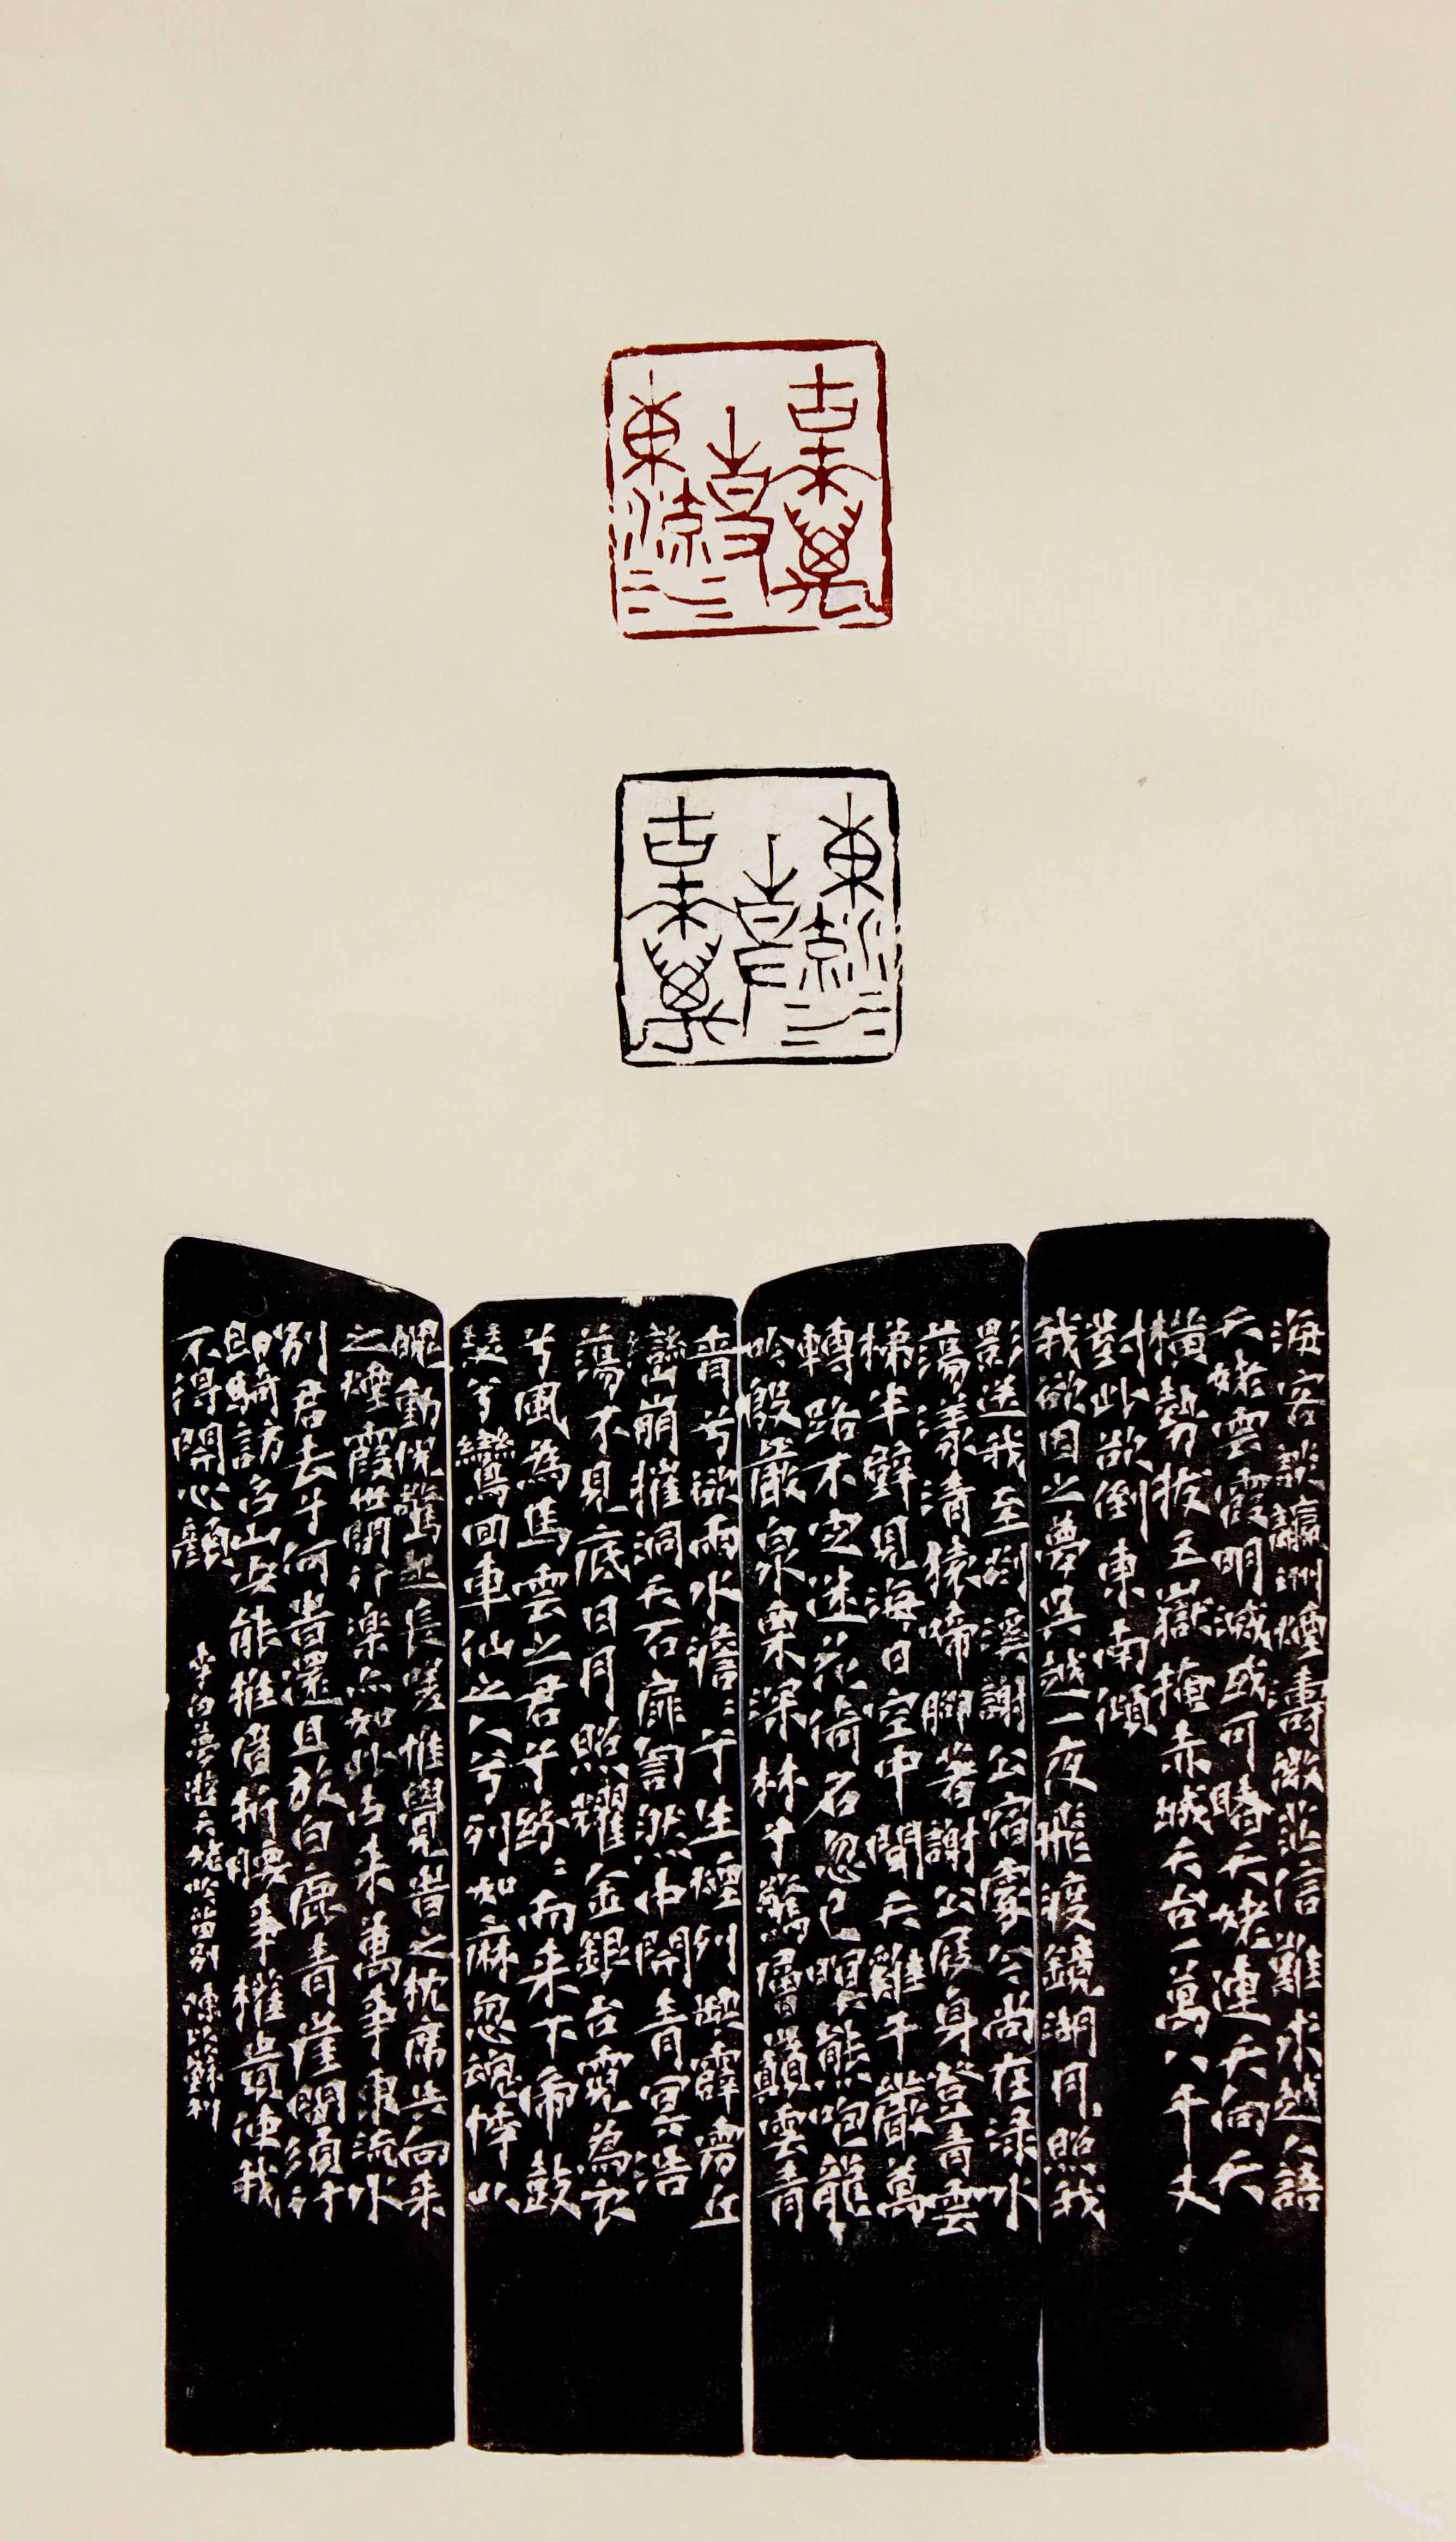 古來萬
事
東流水
東流水
事
古來萬
海客談瀛洲煙濤微茫信難求越人語
天姥雲霞明滅或可睹天姥連天向天
橫勢拔五嶽掩赤城天台一萬八千丈
對此欲倒東南傾
我欲因之夢吳越一夜飛渡鏡湖月照我
影送我至剡溪謝公宿處今尚在淥水
蕩漾清猿啼腳著謝公屐身登青雲
梯半壁見海日空中聞天雞千巖萬
轉路不定迷花倚石忽已暝熊咆龍
吟殷巖泉栗深林兮驚層巔雲青
青兮欲雨水澹〻兮生煙列缺霹靂丘
巒崩摧洞天石扉訇然中開青冥浩
蕩不見底日月照耀金銀台霓為衣
兮風為馬雲之君兮紛〻而来下虎鼓
瑟兮鸞回車仙之人兮列如麻忽魂悸以
魄動怳驚起長嗟惟覺旹之枕席失向来
之煙霞世間行樂亦如此古来萬事東流水
別君去兮何旹還且放白鹿青崖間須行
即騎訪名山安能摧眉折腰事權貴使我
不得開心顏 李白夢遊天姥吟留別